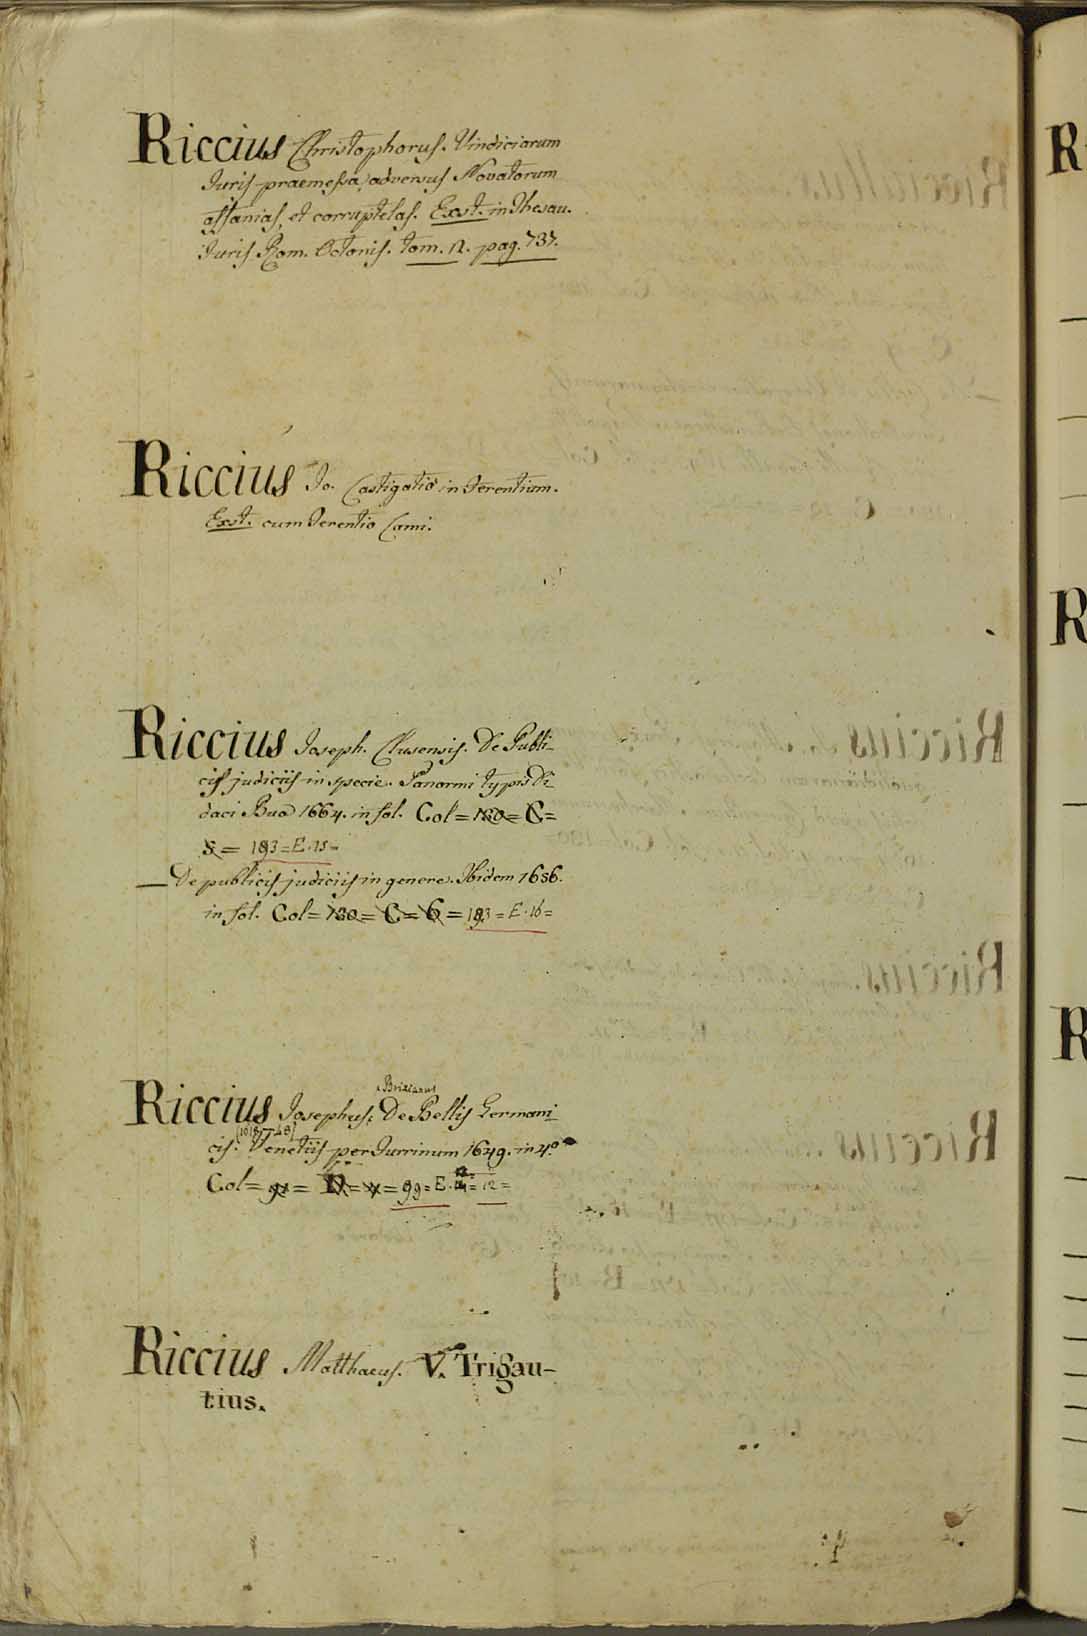 Riccius Christophorus. Vindiciarum
Juris praemessa, adversus Novatorum
assanias, et corruptelas. Exst. in Thesau.
Juris Rom. Octonis. tom. 12. pag. 737.
Riccius Jo. Castigatio in Terentium.
Exst. cum Terentio Cami.
Riccius Joseph. Clusensis. De Publi-
cis judiciis in specie. Panormi typis Di
daci Bua 1664. in fol. Col = 180 = C =
5 = 193 = E. 15 =
— De publicis judiciis in genere. Ibidem 1656.
in fol. Col = 180 = C = 6 = 193 = E. 16 =
Brixianus
Riccius Josephus; De Bellis Germani
[1618-48]
cis. Venetiis per Turrinum 1649. in 4°
Col = = D = = 99 = E. = 12 =
Riccius Matthaeus. V. Trigau-
tius.
R
R
R